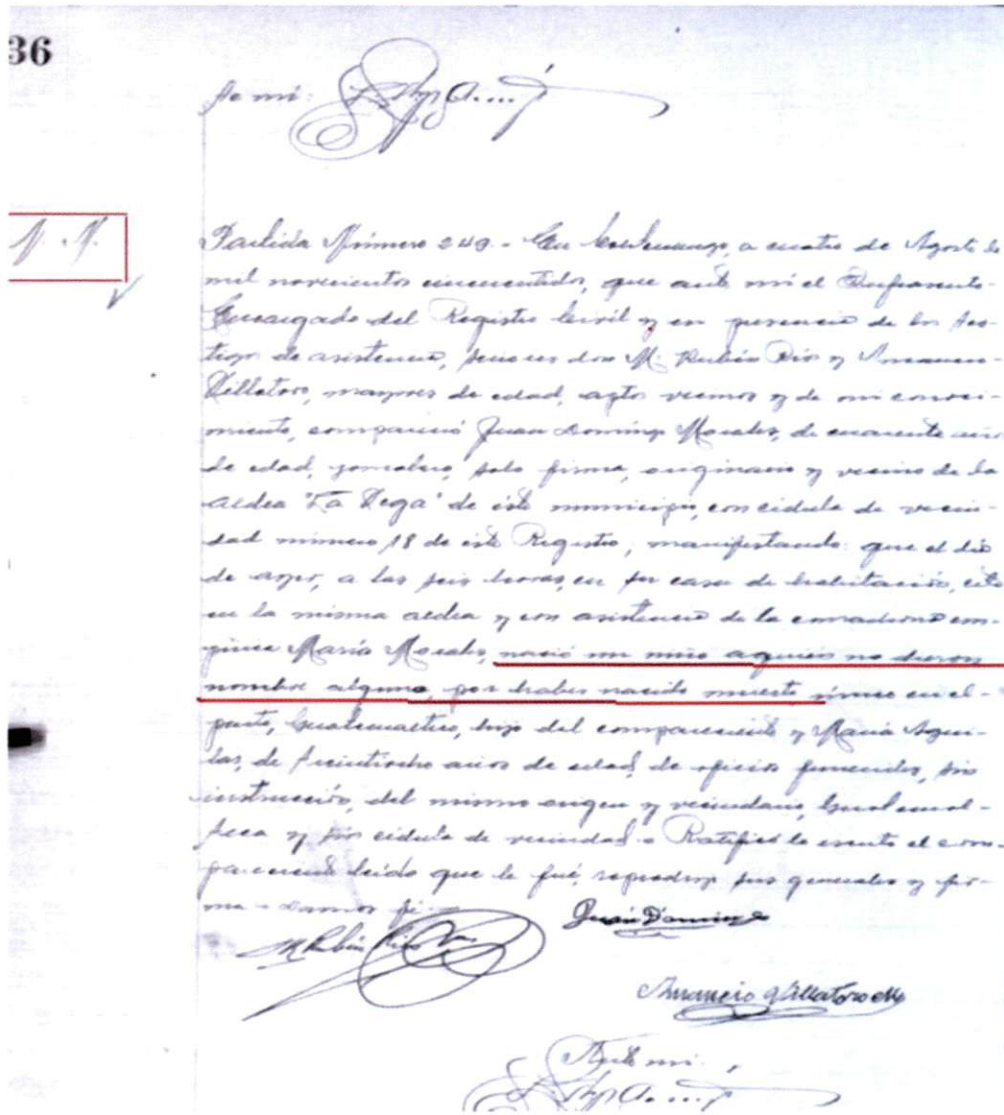 36
Ante mí:
N. N.
Partida Número 249.- En Cuilcenango, a cuatro de Agosto de
mil novecientos cincuentidos, que ante mí el Infrascrito
Encargado del Registro Civil y en presencia de los tes-
tigos de asistencia, señores don M. Rubén Ríos y Amancio
Villatoro, mayores de edad, aptos vecinos y de mi conoci-
miento, compareció Juan Domingo Morales, de cuarenta años
de edad, jornalero, solo firma, originario y vecino de la
aldea "La Vega" de este municipio, con cédula de vecin-
dad número 18 de este Registro, manifestando: que el día
de ayer, a las seis horas, en su casa de habitación, sita
en la misma aldea y con asistencia de la comadrona em-
pírica María Morales, nació un niño a quien no dieron
nombre alguno, por haber nacido muerto único en el
parto, Guatemalteco, hijo del compareciente y María Agui-
lar, de treintiocho años de edad, de oficios femeniles, sin
instrucción, del mismo origen y vecindario, Guatemal-
teca y sin cédula de vecindad. Ratificó lo escrito el com-
pareciente leído que le fué, reprodujo sus generales y fir-
ma - Damos fé.
Juan Domingo
M. Rubén Ríos
Amancio Villatoro M
Ante mí: